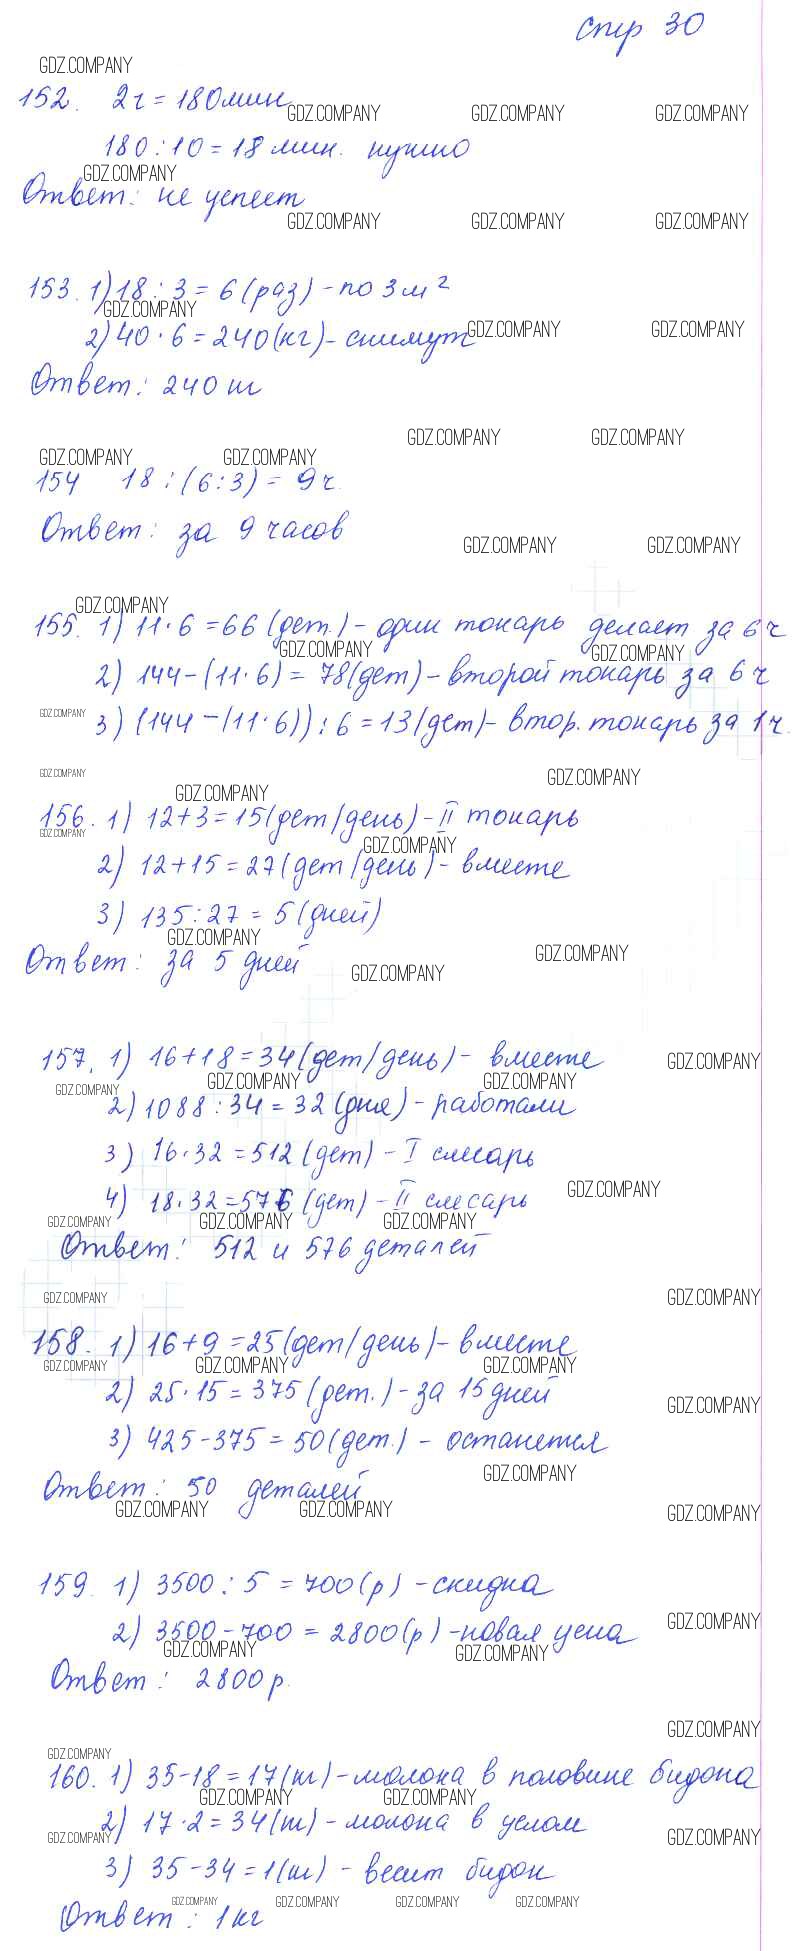 стр 30
GDZ.COMPANY
152. 2ч = 180мин
GDZ.COMPANY GDZ.COMPANY GDZ.COMPANY
180:10=18 мин. нужно
GDZ.COMPANY
Ответ: не успеет
GDZ.COMPANY GDZ.COMPANY GDZ.COMPANY
153. 1) 18 : 3 = 6 (раз) - по 3 м²
GDZ.COMPANY
2) 40 · 6 = 240 (кг) - снимут
GDZ.COMPANY GDZ.COMPANY
Ответ: 240 кг
GDZ.COMPANY GDZ.COMPANY
GDZ.COMPANY GDZ.COMPANY
154 18 : (6:3) = 9 ч.
Ответ: за 9 часов
GDZ.COMPANY GDZ.COMPANY
GDZ.COMPANY
155. 1) 11·6 = 66 (дет.) - один токарь делает за 6 ч
GDZ.COMPANY GDZ.COMPANY
2) 144-(11·6) = 78(дет) - второй токарь за 6 ч
GDZ.COMPANY
3) (144-(11·6)) : 6 = 13 (дет) - втор. токарь за 1ч.
GDZ.COMPANY GDZ.COMPANY
GDZ.COMPANY
156. 1) 12+3=15(дет/день) - II токарь
GDZ.COMPANY GDZ.COMPANY
2) 12+15 = 27 (дет/день) - вместе
3) 135:27 = 5 (дней)
GDZ.COMPANY GDZ.COMPANY
Ответ: за 5 дней
GDZ.COMPANY
157. 1) 16+18=34 (дет/день) - вместе
GDZ.COMPANY
GDZ.COMPANY GDZ.COMPANY GDZ.COMPANY
2) 1088:34 = 32 (дня) - работали
3) 16·32 = 512 (дет) - I слесарь
4) 18·32=576 (дет) - II слесарь
GDZ.COMPANY
GDZ.COMPANY GDZ.COMPANY GDZ.COMPANY
Ответ: 512 и 576 деталей
GDZ.COMPANY GDZ.COMPANY
158. 1) 16+9=25(дет/день) - вместе
GDZ.COMPANY GDZ.COMPANY GDZ.COMPANY
2) 25·15 = 375 (дет.) - за 15 дней
GDZ.COMPANY
3) 425-375 = 50 (дет.) - останется
GDZ.COMPANY
Ответ: 50 деталей
GDZ.COMPANY GDZ.COMPANY GDZ.COMPANY
159. 1) 3500 : 5 = 700 (р) - скидка
GDZ.COMPANY
2) 3500-700 = 2800(р) - новая цена
GDZ.COMPANY GDZ.COMPANY
Ответ: 2800 р.
GDZ.COMPANY
GDZ.COMPANY
160. 1) 35-18 = 17 (кг) - молока в половине бидона
GDZ.COMPANY GDZ.COMPANY
2) 17·2=34 (кг) - молока в целом
GDZ.COMPANY GDZ.COMPANY
3) 35-34 = 1 (кг) - весит бидон
GDZ.COMPANY GDZ.COMPANY GDZ.COMPANY GDZ.COMPANY
Ответ: 1 кг